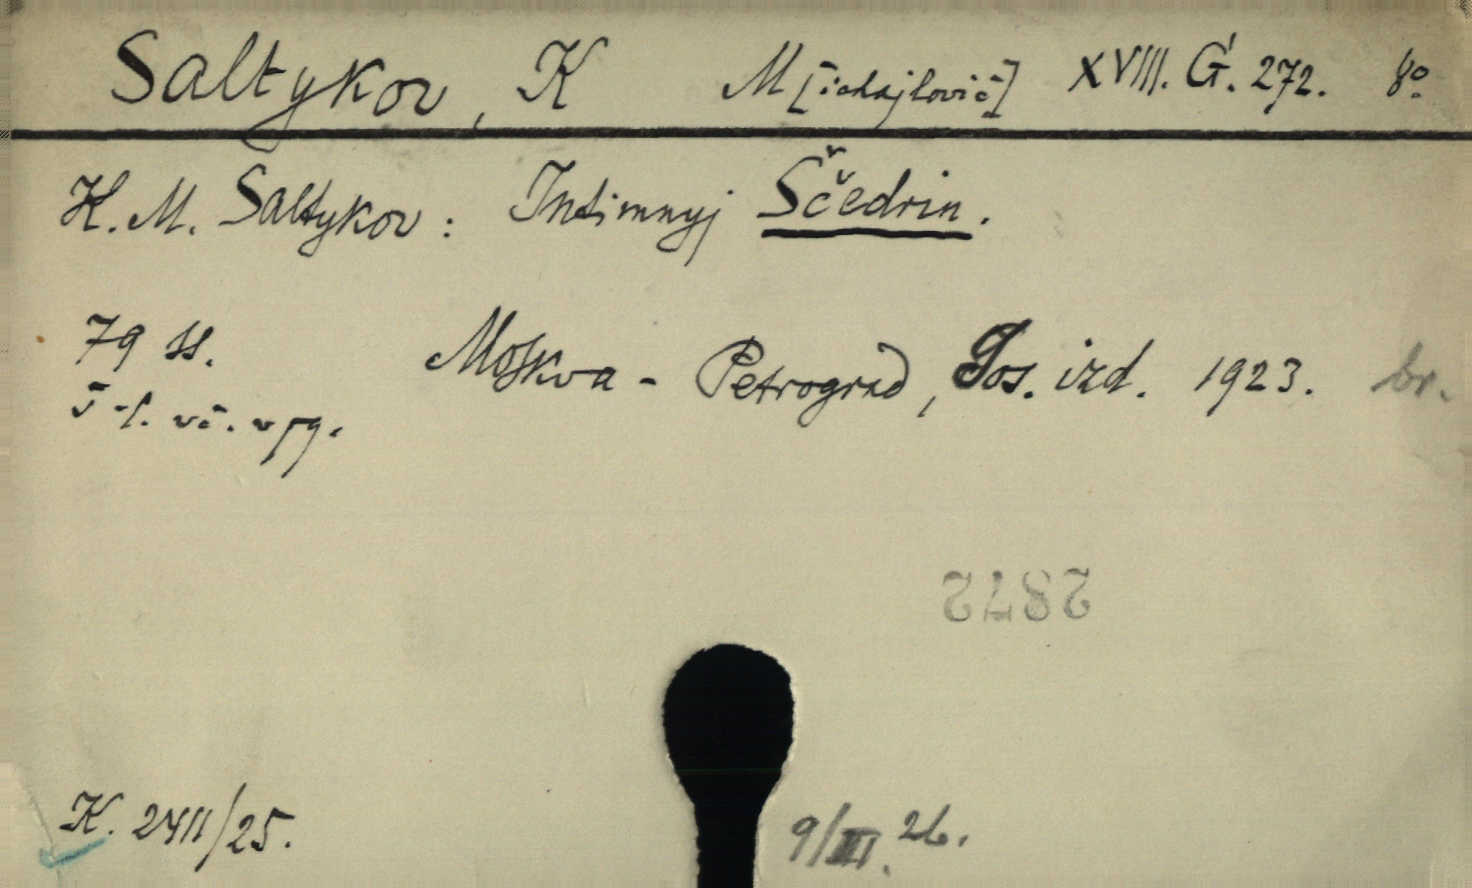 Saltykov, K M[ichajlovič] XVIII. G. 272. 8º
K. M. Saltykov: Intimnyj Ščedrin.
79 ss. Moskva - Petrograd, Gos. izd. 1923. br.
2872
K. 2411/25. 9/III. 26.